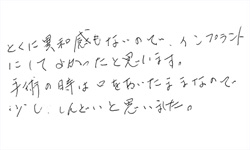 とくに異和感もないので、インプラント
にしてよかったと思います。
手術の時は口をあいたままなので
少し、しんどいと思いました。